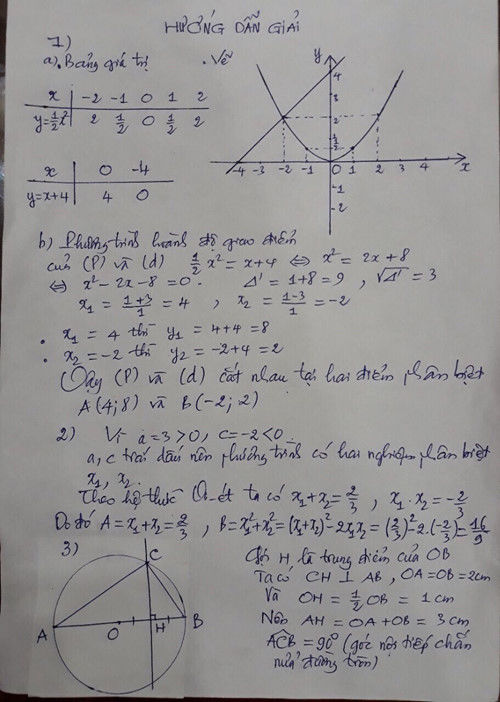 HƯỚNG DẪN GIẢI
1)
a). Bảng giá trị . Vẽ
x -2 -1 0 1 2
y=½x² 2 ½ 0 ½ 2
x 0 -4
y=x+4 4 0
y
4
3
2
1/2
-4 -3 -2 -1 0 1 2 3 4 x
-1
-2
b) Phương trình hoành độ giao điểm
của (P) và (d) ½x² = x+4 ⇔ x² = 2x+8
⇔ x² - 2x - 8 = 0. Δ' = 1+8 = 9, √Δ' = 3
x₁ = (1+3)/1 = 4, x₂ = (1-3)/1 = -2
. x₁ = 4 thì y₁ = 4+4 = 8
. x₂ = -2 thì y₂ = -2+4 = 2
Vậy (P) và (d) cắt nhau tại hai điểm phân biệt
A(4;8) và B(-2;2)
2) Vì a=3>0, c=-2<0
a, c trái dấu nên phương trình có hai nghiệm phân biệt
x₁, x₂.
Theo hệ thức Vi-ét ta có x₁+x₂ = 2/3, x₁.x₂ = -2/3
Do đó A = x₁+x₂ = 2/3, B = x₁²+x₂² = (x₁+x₂)² - 2x₁x₂ = (2/3)² - 2.(-2/3) = 16/9
3)
C
A O H B
Gọi H là trung điểm của OB
Ta có CH ⊥ AB, OA=OB=2cm
Và OH = ½ OB = 1 cm
Nên AH = OA + OB = 3 cm
ACB = 90° (góc nội tiếp chắn
nửa đường tròn)